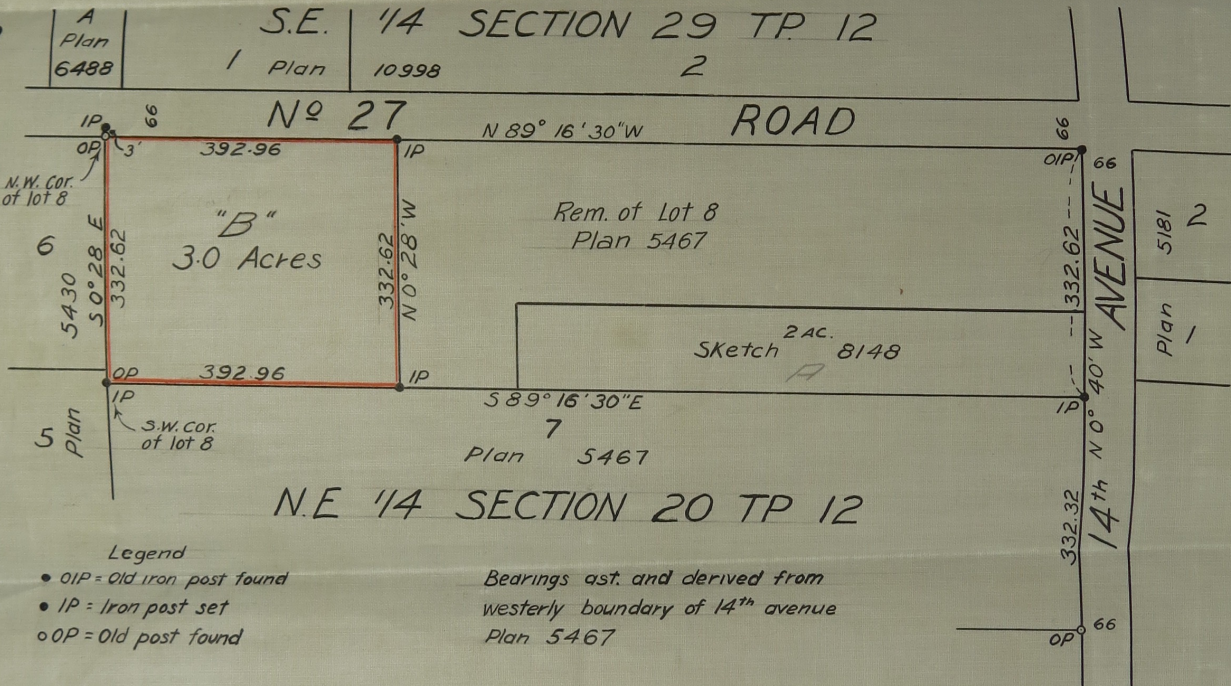 A
Plan
6488
S.E. 1/4 SECTION 29 TP. 12
1 Plan 10998 2
No 27 ROAD
66
IP
OP
3'
392.96
IP
N 89° 16' 30" W
66
OIP
66
N.W. Cor.
of lot 8
6
5430
S 0° 28 E
332.62
"B"
3.0 Acres
332.62
N 0° 28' W
Rem. of Lot 8
Plan 5467
332.62
AVENUE
5181
2
Plan
1
2 AC.
Sketch 8148
A
OP
392.96
IP
IP
S 89° 16' 30" E
IP
N 0° 40' W
5
Plan
S.W. Cor.
of lot 8
7
Plan 5467
N.E 1/4 SECTION 20 TP 12
332.32
14th
Legend
OIP = Old iron post found
IP = Iron post set
OP = Old post found
Bearings ast. and derived from
westerly boundary of 14th avenue
Plan 5467
66
OP